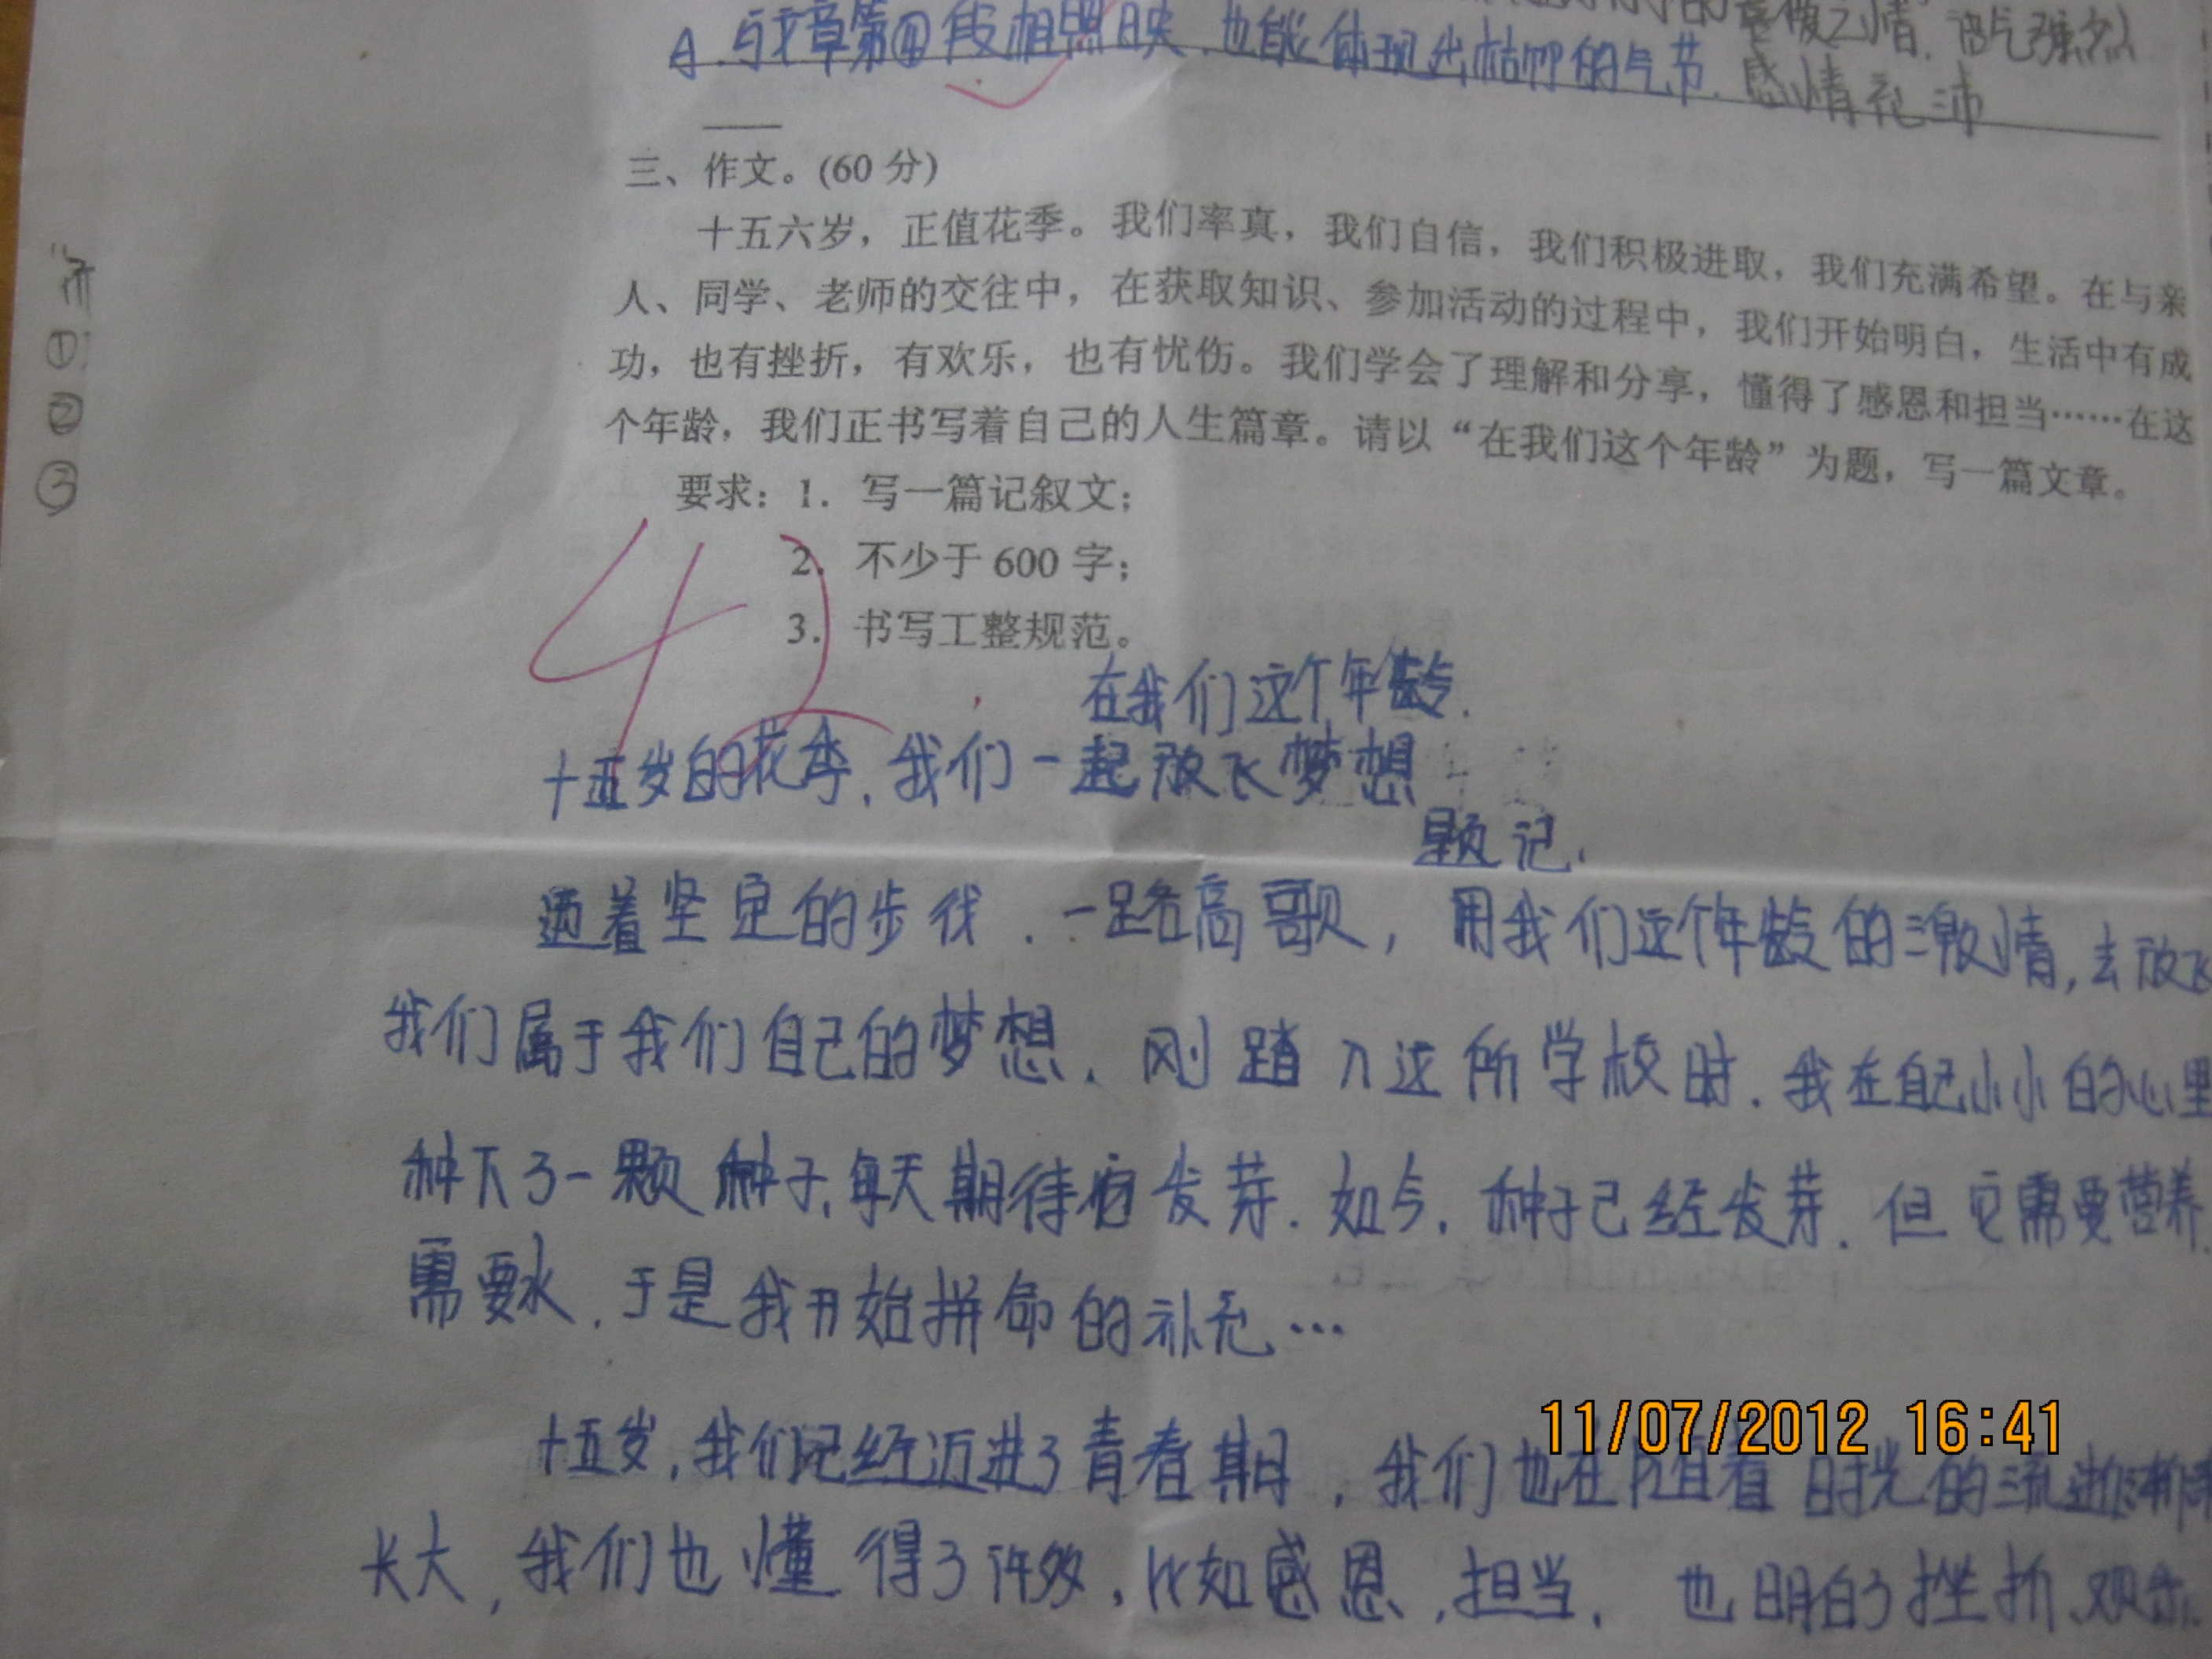 之情.语气强烈
A.与文章第四段相照映.也能体现出枯柳的气节.感情充沛
三、作文。(60 分)
十五六岁，正值花季。我们率真，我们自信，我们积极进取，我们充满希望。在与亲
人、同学、老师的交往中，在获取知识、参加活动的过程中，我们开始明白，生活中有成
功，也有挫折，有欢乐，也有忧伤。我们学会了理解和分享，懂得了感恩和担当……在这
个年龄，我们正书写着自己的人生篇章。请以“在我们这个年龄”为题，写一篇文章。
要求：1. 写一篇记叙文；
2. 不少于 600 字；
3. 书写工整规范。
①
②
③
42
在我们这个年龄.
十五岁的花季,我们一起放飞梦想
题记.
迈着坚定的步伐.一路高歌,用我们这个年龄的激情,去放飞
我们属于我们自己的梦想.刚踏入这所学校时.我在自己小小的心里
种下了一颗种子,每天期待着发芽.如今.种子已经发芽.但它需要营养.
需要水.于是我开始拼命的补充...
十五岁,我们已经迈进了青春期,我们也在随着时光的流逝渐渐
长大,我们也懂得了许多,比如感恩,担当.也明白了挫折.欢乐.
11/07/2012 16:41